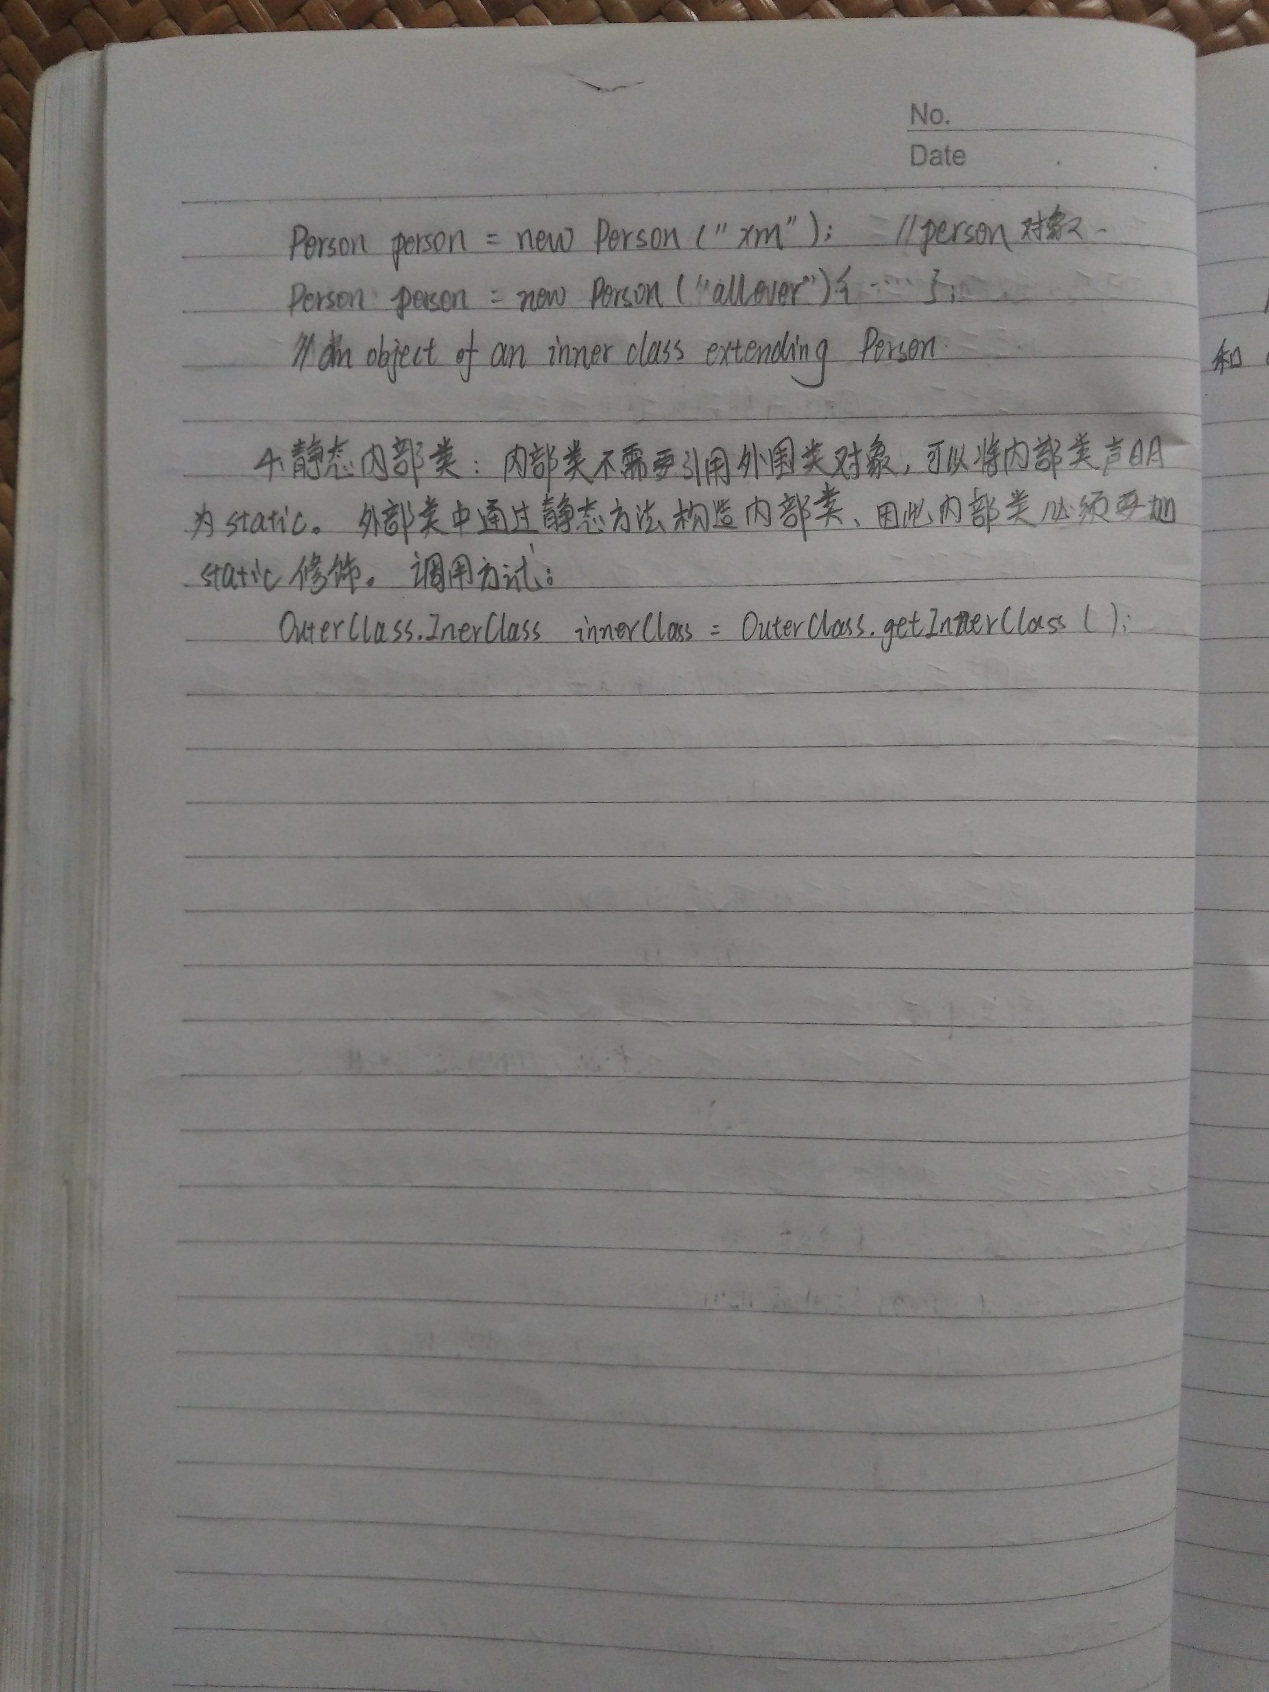 No.
Date
Person person = new Person ("xm"); //person 对象
Person person = new Person ("allever"){ ... };
// an object of an inner class extending Person.
4. 静态内部类：内部类不需要引用外围类对象，可以将内部类声明
为 static。外部类中通过静态方法构造内部类、因此内部类必须要加
static 修饰。调用方式：
OuterClass.InerClass innerClass = OuterClass.getInnerClass ();
和